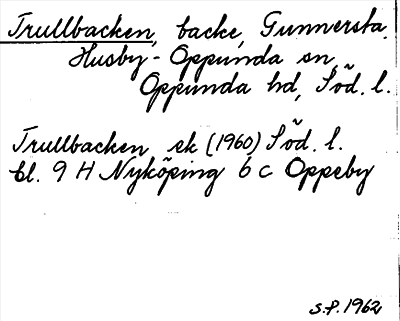 Trullbacken, backe, Gunnersta,
Husby-Oppunda sn,
Oppunda hd, Söd. l.
Trullbacken ek (1960) Söd. l.
bl. 9 H Nyköping 6 c Oppeby
S.P. 1962